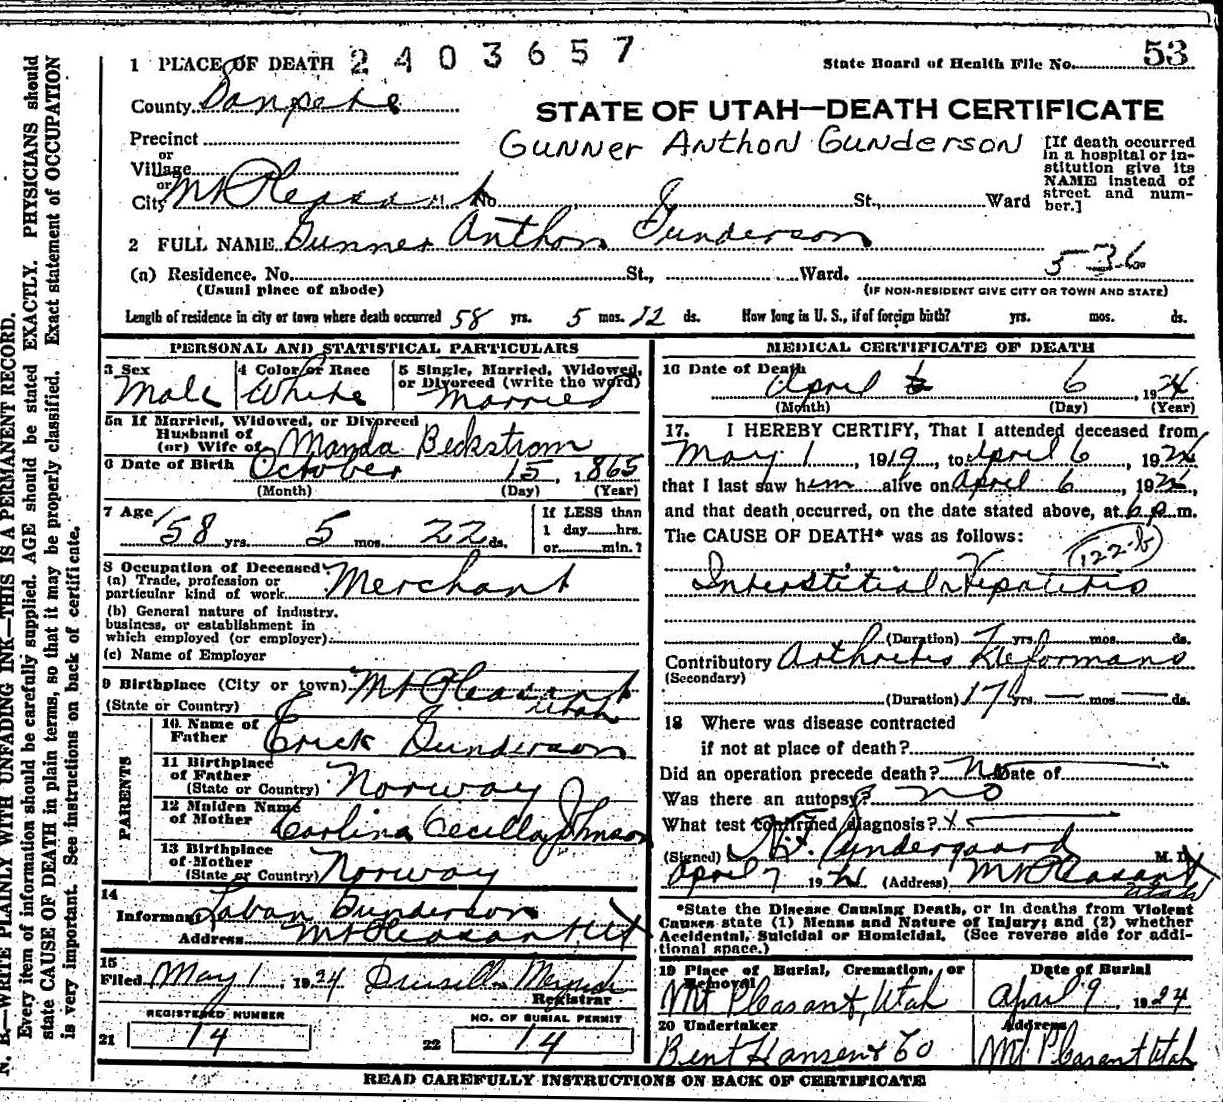 N. B.—WRITE PLAINLY WITH UNFADING INK—THIS IS A PERMANENT RECORD.
Every item of information should be carefully supplied. AGE should be stated EXACTLY. PHYSICIANS should
state CAUSE OF DEATH in plain terms, so that it may be properly classified. Exact statement of OCCUPATION
is very important. See instructions on back of certificate.
1 PLACE OF DEATH 2403657
State Board of Health File No. 53
County Sanpete
STATE OF UTAH—DEATH CERTIFICATE
Precinct
GUNNER ANTHON GUNDERSON
or
Village
or
City Mt Pleasant No. St., Ward
[If death occurred
in a hospital or in-
stitution give its
NAME instead of
street and num-
ber.]
2 FULL NAME Gunner Anthon Gunderson
5-36
(a) Residence. No. St., Ward.
(Usual place of abode) (IF NON-RESIDENT GIVE CITY OR TOWN AND STATE)
Length of residence in city or town where death occurred 58 yrs. 5 mos. 22 ds. How long in U. S., if of foreign birth? yrs. mos. ds.
PERSONAL AND STATISTICAL PARTICULARS
3 Sex Male
4 Color or Race White
5 Single, Married, Widowed,
or Divorced (write the word)
Married
5a If Married, Widowed, or Divorced
Husband of
(or) Wife of Manda Beckstrom
6 Date of Birth October 15, 1865
(Month) (Day) (Year)
7 Age 58 yrs. 5 mos. 22 ds.
If LESS than
1 day hrs.
or min.?
8 Occupation of Deceased
(a) Trade, profession or
particular kind of work Merchant
(b) General nature of industry.
business, or establishment in
which employed (or employer)
(c) Name of Employer
9 Birthplace (City or town) Mt Pleasant
(State or Country) Utah
PARENTS
10. Name of
Father Erick Gunderson
11 Birthplace
of Father
(State or Country) Norway
12 Maiden Name
of Mother Carlina Cecilla Johnson
13 Birthplace
of Mother
(State or Country) Norway
14
Informant Laban Gunderson
Address Mt Pleasant Ut
15
Filed May 1, 1924
Registrar
REGISTERED NUMBER
21 14
NO. OF BURIAL PERMIT
22 14
MEDICAL CERTIFICATE OF DEATH
16 Date of Death
April 6 1924
(Month) (Day) (Year)
17. I HEREBY CERTIFY, That I attended deceased from
May 1, 1919, to April 6, 1924
that I last saw him alive on April 6, 1924,
and that death occurred, on the date stated above, at 6 p.m.
The CAUSE OF DEATH* was as follows:
122-b
Interstitial Hepatitis
(Duration) yrs. mos. ds.
Contributory Arthritis Deformans
(Secondary)
(Duration) 17 yrs. — mos. — ds.
18 Where was disease contracted
if not at place of death?
Did an operation precede death? No Date of
Was there an autopsy? no
What test confirmed diagnosis? x
(Signed) M. D.
April 7 1924 (Address) Mt Pleasant
Utah
*State the Disease Causing Death, or in deaths from Violent
Causes state (1) Means and Nature of Injury; and (2) whether
Accidental, Suicidal or Homicidal. (See reverse side for addi-
tional space.)
19 Place of Burial, Cremation, or
Removal
Mt Pleasant, Utah
Date of Burial
April 9 1924
20 Undertaker
Bent Hansen & Co
Address
Mt Pleasant Utah
READ CAREFULLY INSTRUCTIONS ON BACK OF CERTIFICATE